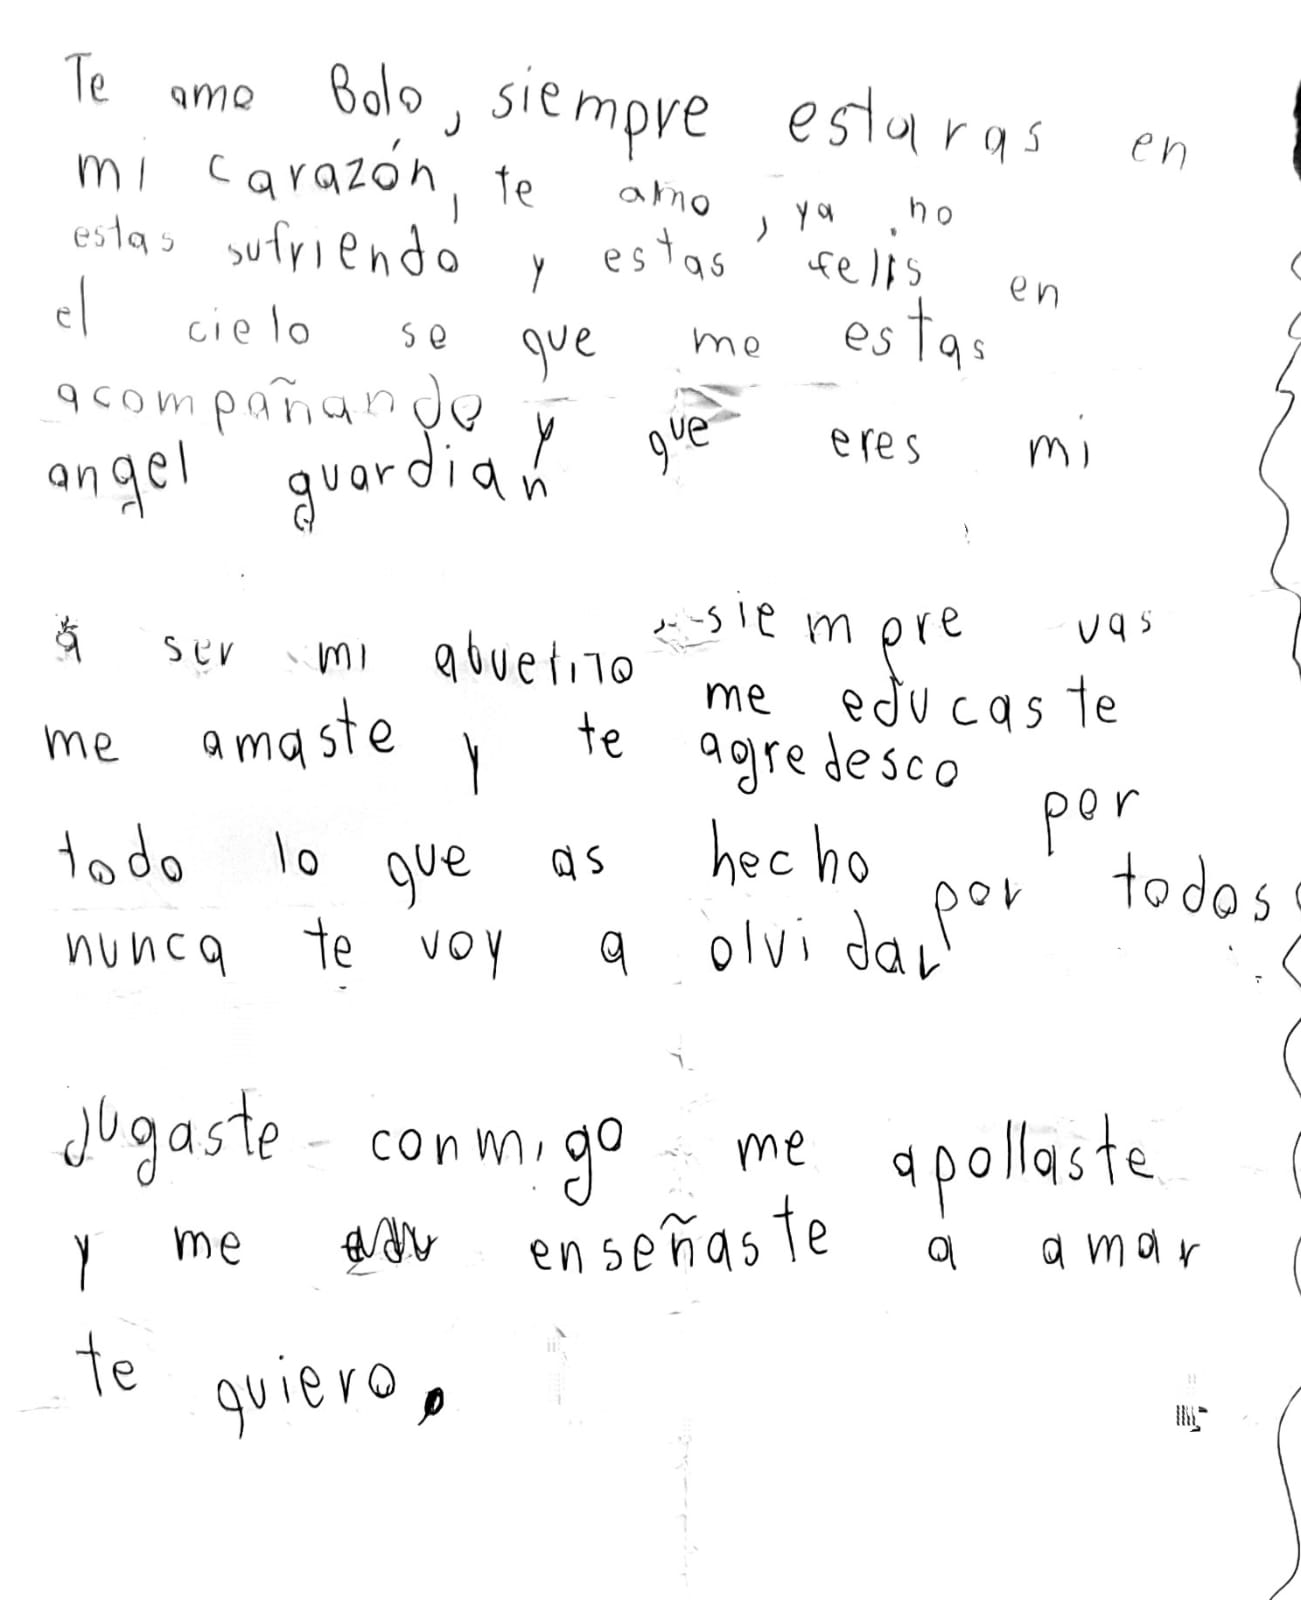 Te amo Bolo, siempre estaras en
mi carazón, te amo, ya no
estas sufriendo y estas felis en
el cielo se que me estas
acompañando y que eres mi
angel guardian
siempre vas
a ser mi abuelito me educaste
me amaste y te agredesco por
todo lo que as hecho por todos
nunca te voy a olvidar
Jugaste conmigo me apollaste
y me enseñaste a amar
te quiero.